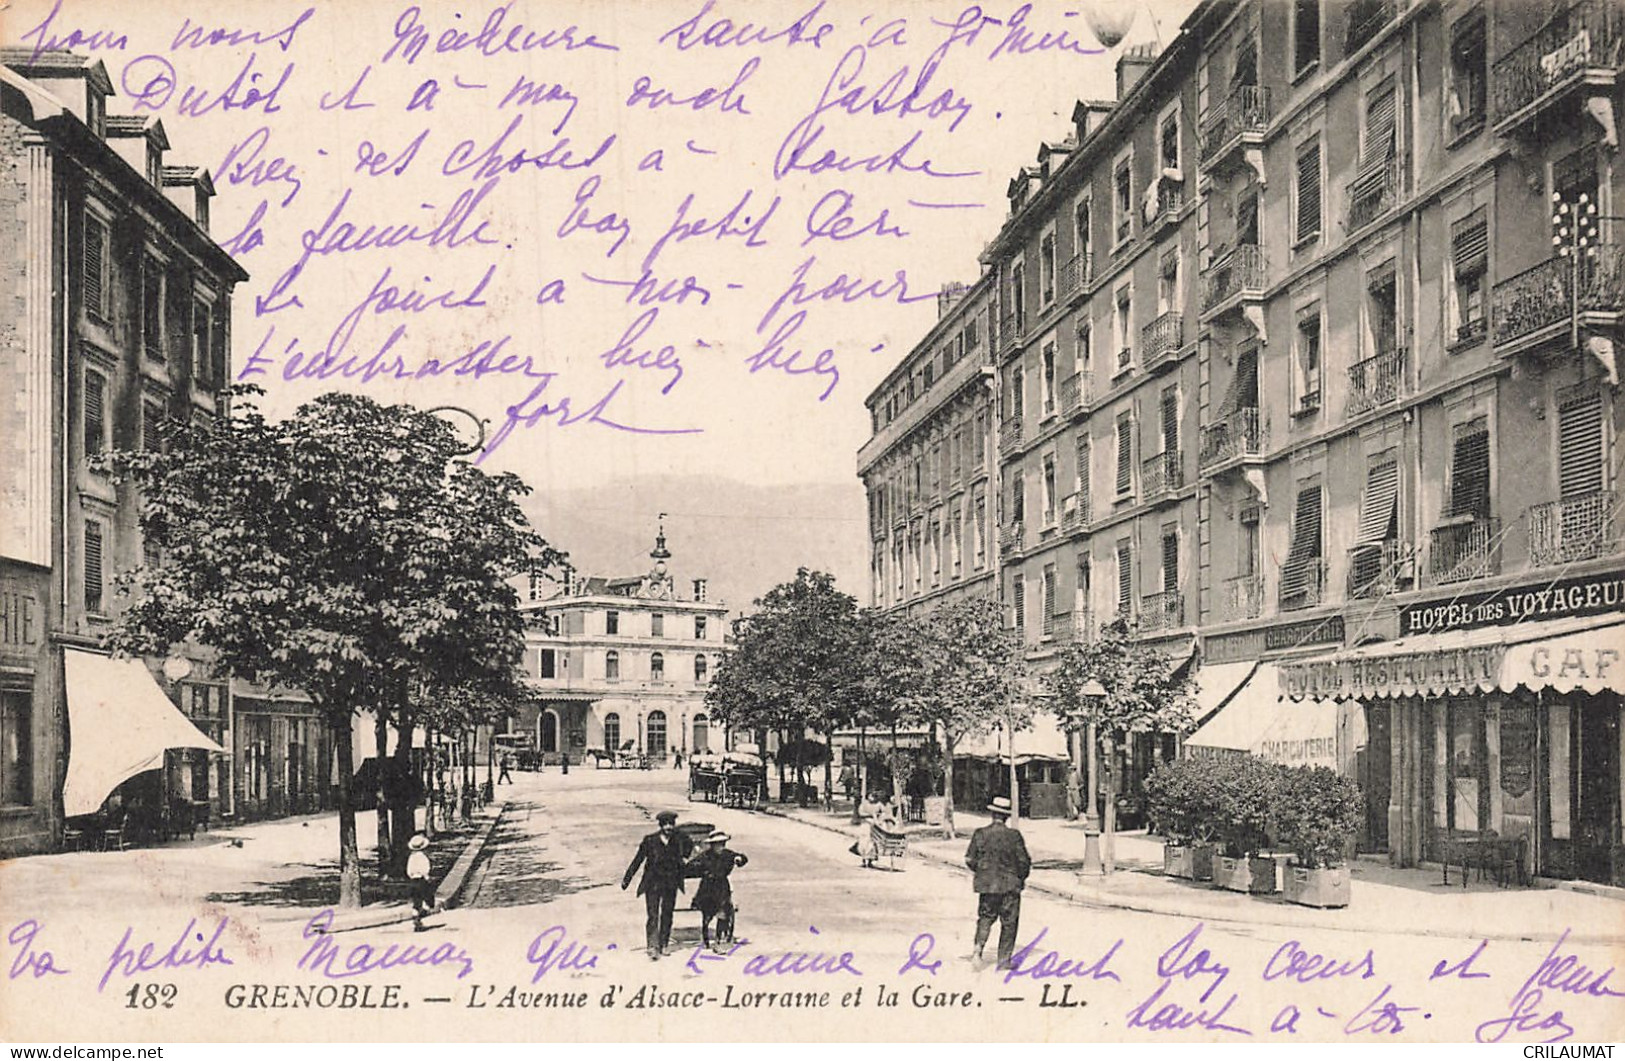 pour nous Meilleure Santé à St Min
Dutôt et à moy oncle Gastoy.
Biey des choses à toute
la famille. Toy petit Céri
se joint à moi pour
t'embrasser biey biey
fort
HOTEL DES VOYAGEU
CHARCUTERIE
HOTEL RESTAURANT CAF
CHARCUTERIE
Ta petite Mamay qui t'aime de tout soy cœur et pense
tant à toi.
182 GRENOBLE. — L'Avenue d'Alsace-Lorraine et la Gare. — LL.
CRILAUMAT